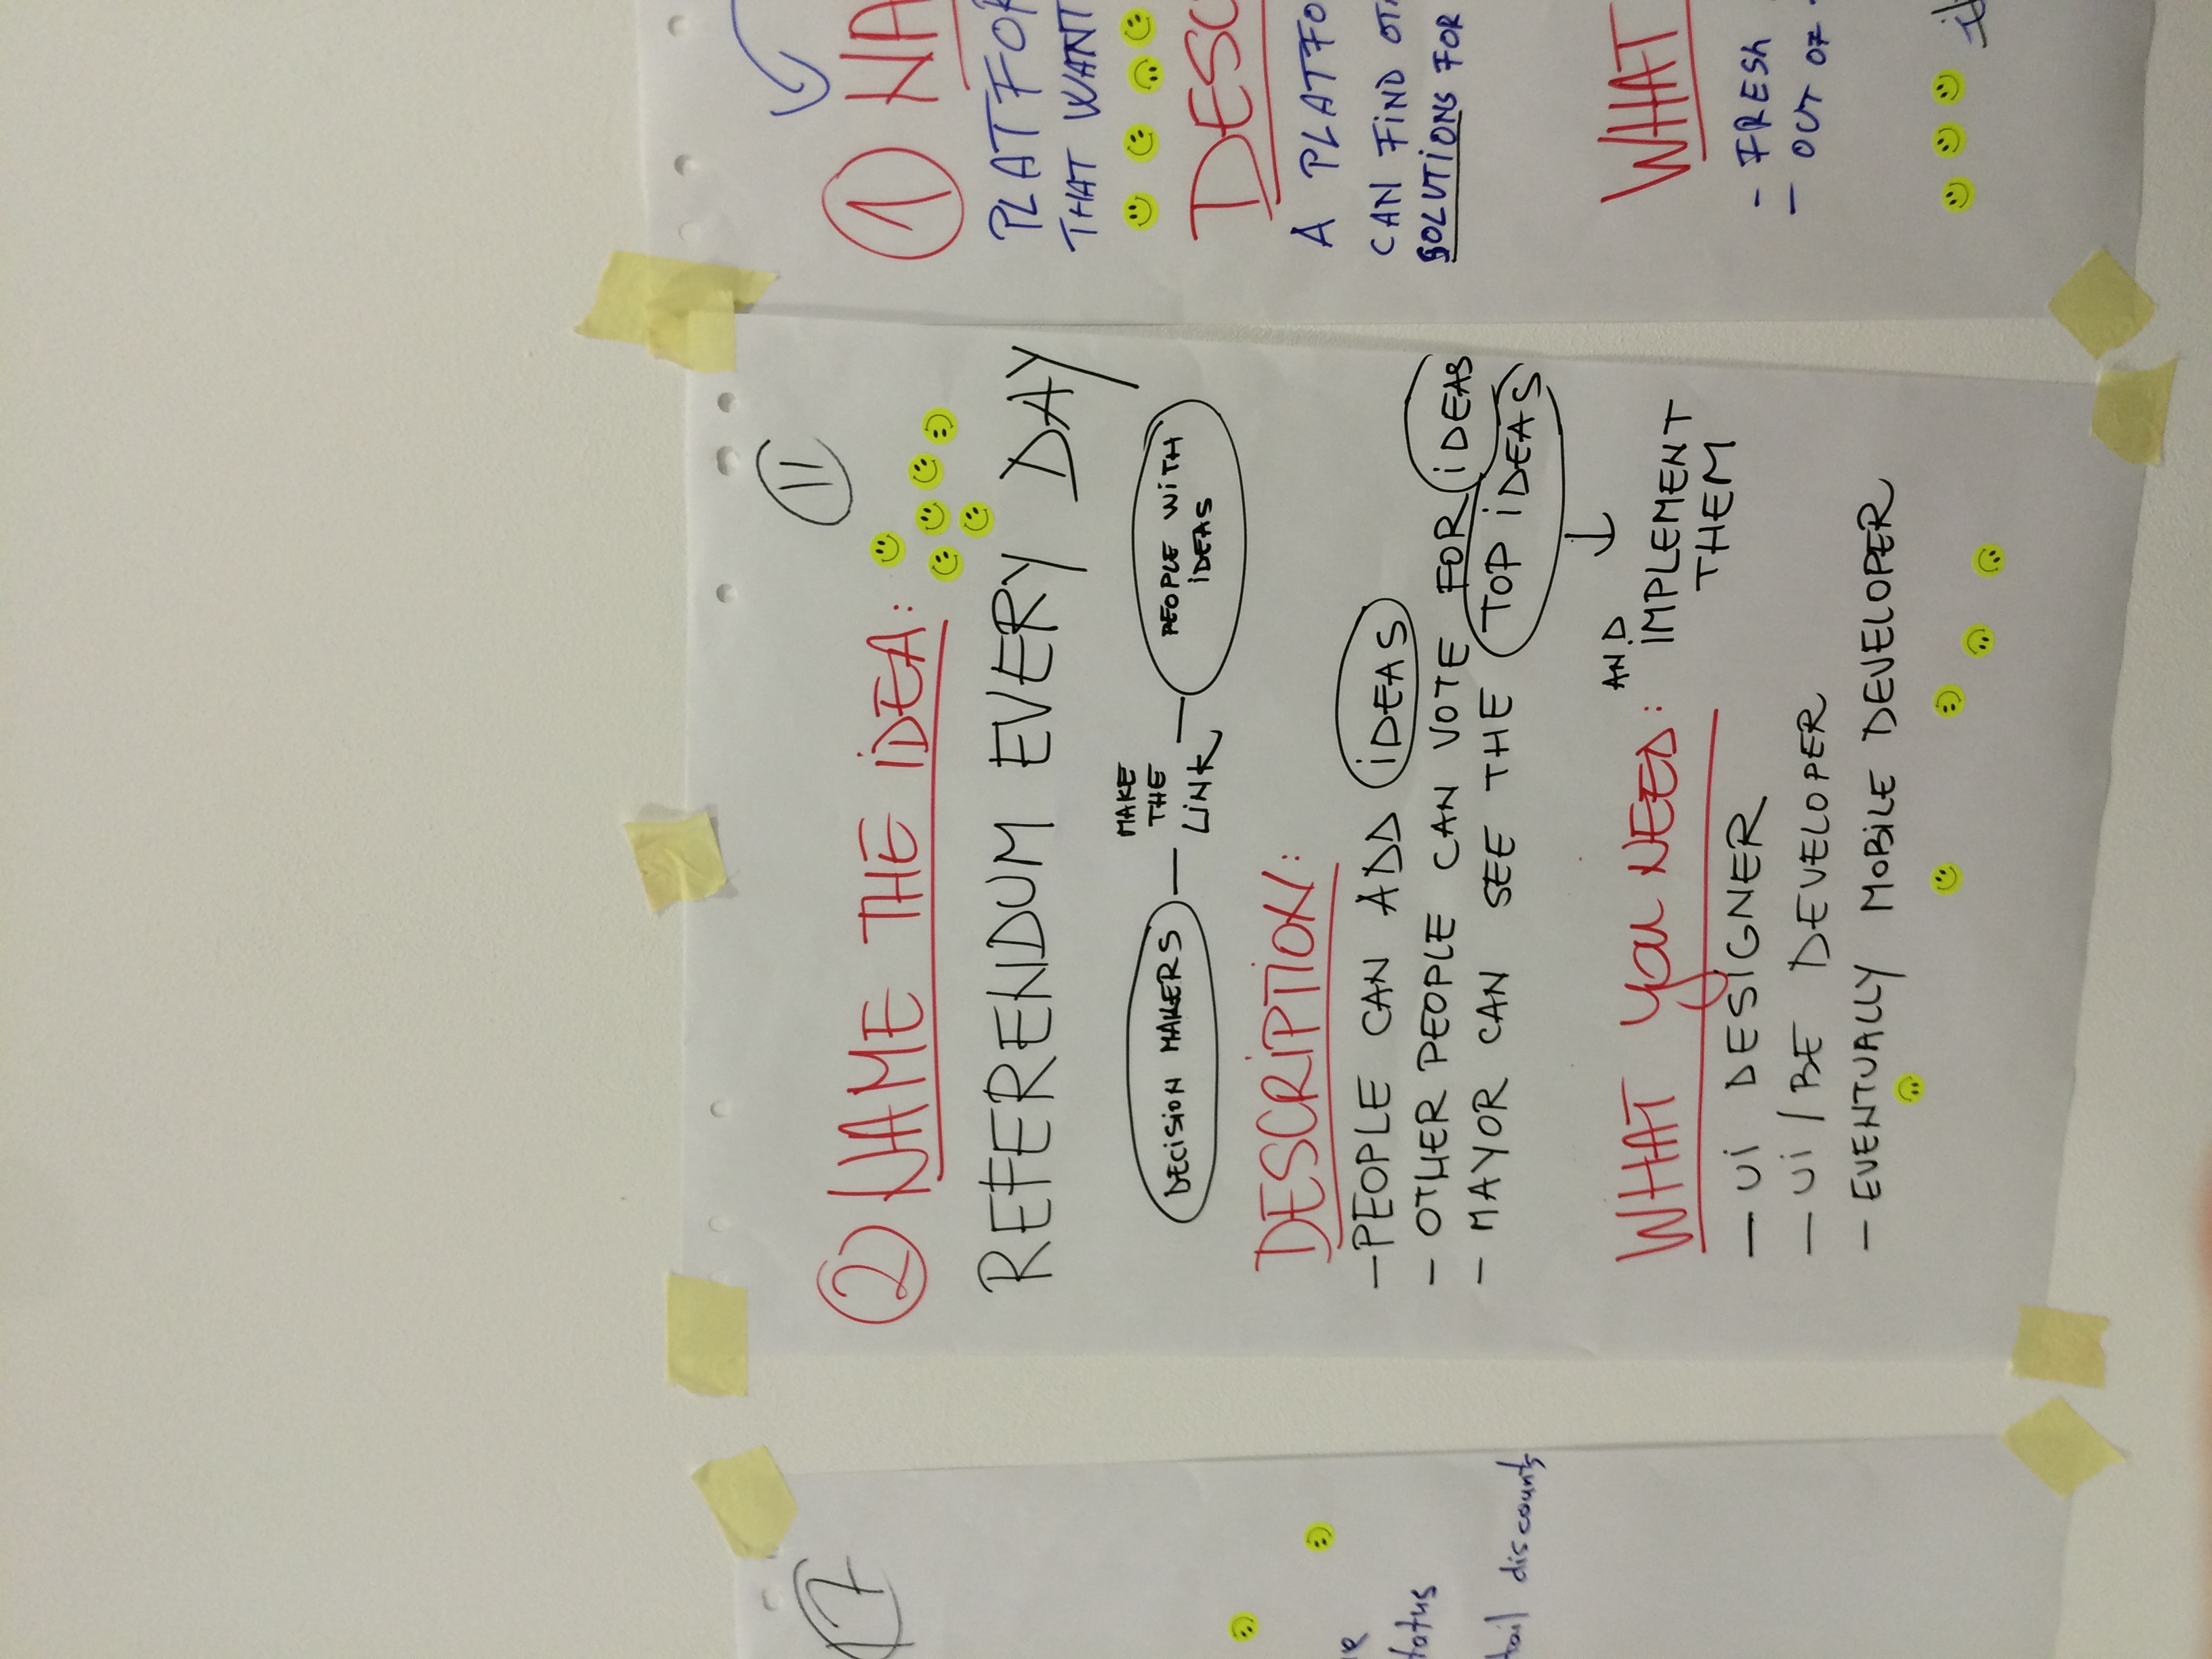 7
tatus
tail discounts
11
2 NAME THE iDEA:
REFERENDUM EVERY DAY
DECISION MAKERS — MAKE THE LiNK — PEOPLE WiTH iDEAS
DESCRiPTiON:
— PEOPLE CAN ADD iDEAS
— OTHER PEOPLE CAN VOTE FOR iDEAS
— MAYOR CAN SEE THE TOP iDEAS
↓
AND iMPLEMENT
THEM
WHAT you NEED:
— Ui DESiGNER
— Ui / BE DEVELOPER
— EVENTUALLY MOBiLE DEVELOPER
1 NA
PLATFOR
THAT WANT
DESC
A PLATFO
CAN FiND OTH
SOLUTiONS FOR
WHAT
- FRESh
- OUT OF